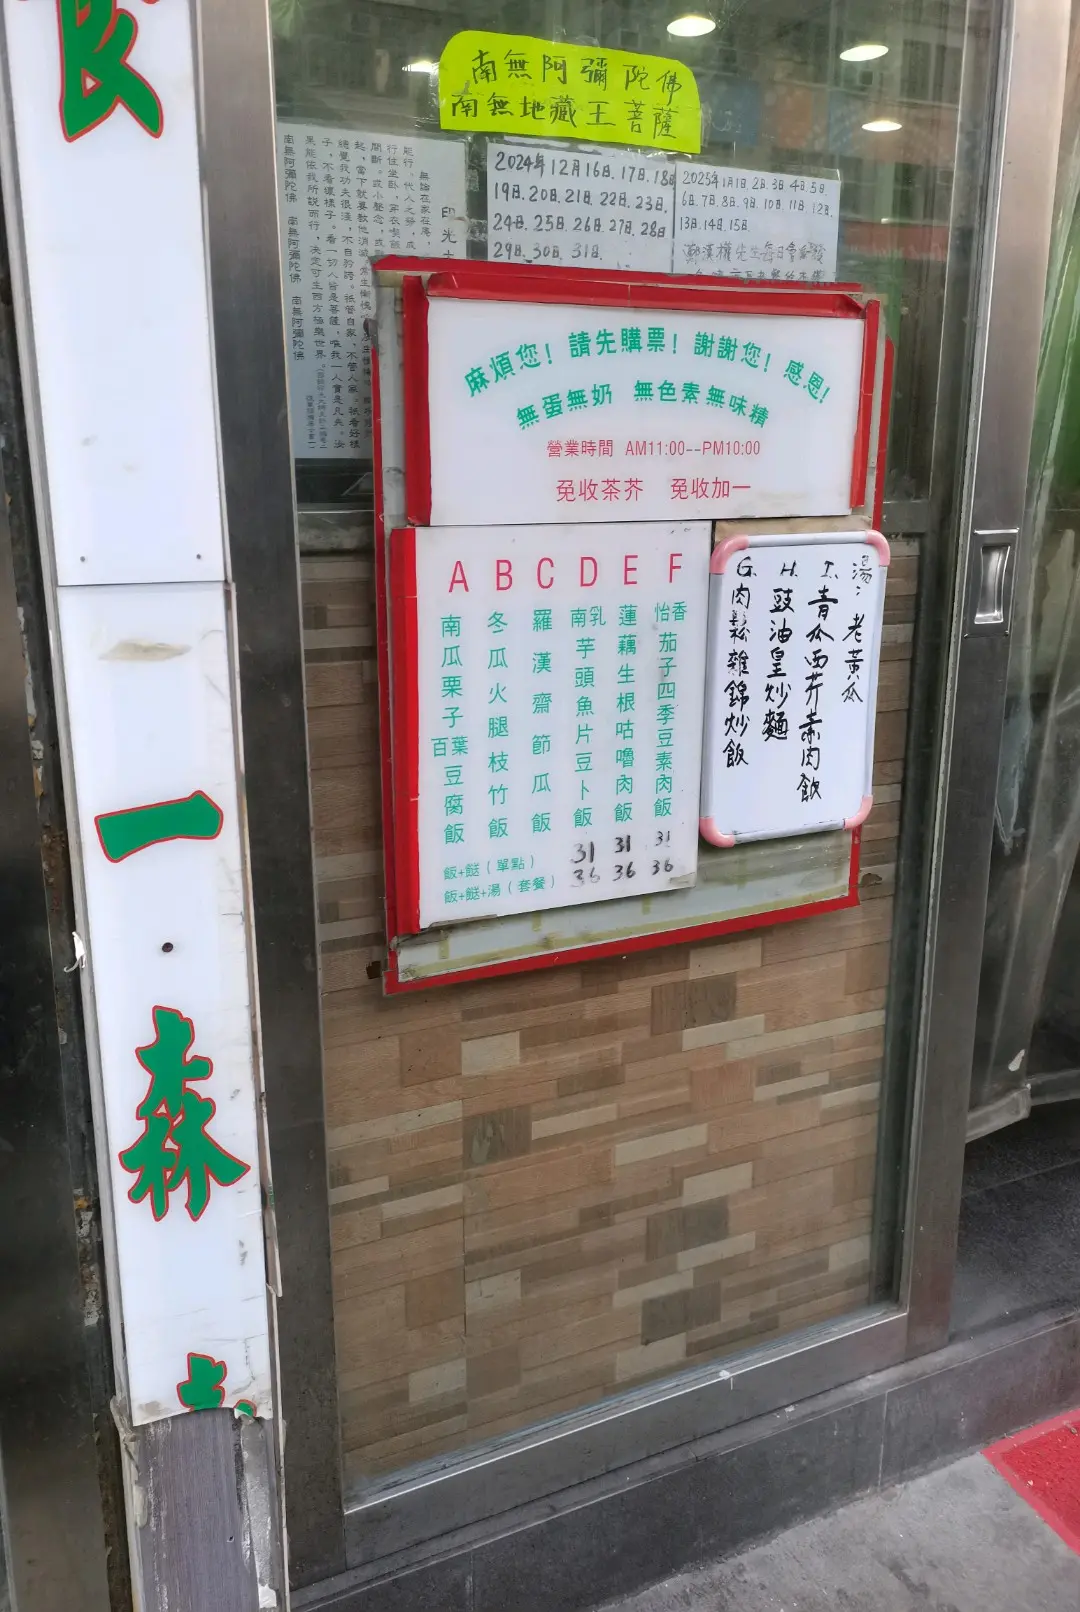 南無阿彌陀佛
南無地藏王菩薩
2024年12月16日.17日.18日
19日.20日.21日.22日.23日.
24日.25日.26日.27日.28日
29日.30日.31日.
2025年1月1日.2日.3日.4日.5日.
6日.7日.8日.9日.10日.11日.12日.
13日.14日.15日.
無論在家在庵，
南無阿彌陀佛 南無阿彌陀佛 南無阿彌陀佛
麻煩您！請先購票！謝謝您！感恩！
無蛋無奶 無色素無味精
營業時間 AM11:00--PM10:00
免收茶芥 免收加一
A 南瓜栗子百葉豆腐飯
B 冬瓜火腿枝竹飯
C 羅漢齋節瓜飯
D 南乳芋頭魚片豆卜飯
E 蓮藕生根咕嚕肉飯
F 怡香茄子四季豆素肉飯
飯+餸（單點） 31 31 31
飯+餸+湯（套餐） 36 36 36
湯：老黃瓜
I. 青瓜西芹素肉飯
H. 豉油皇炒麵
G. 肉鬆雜錦炒飯
食
一
森